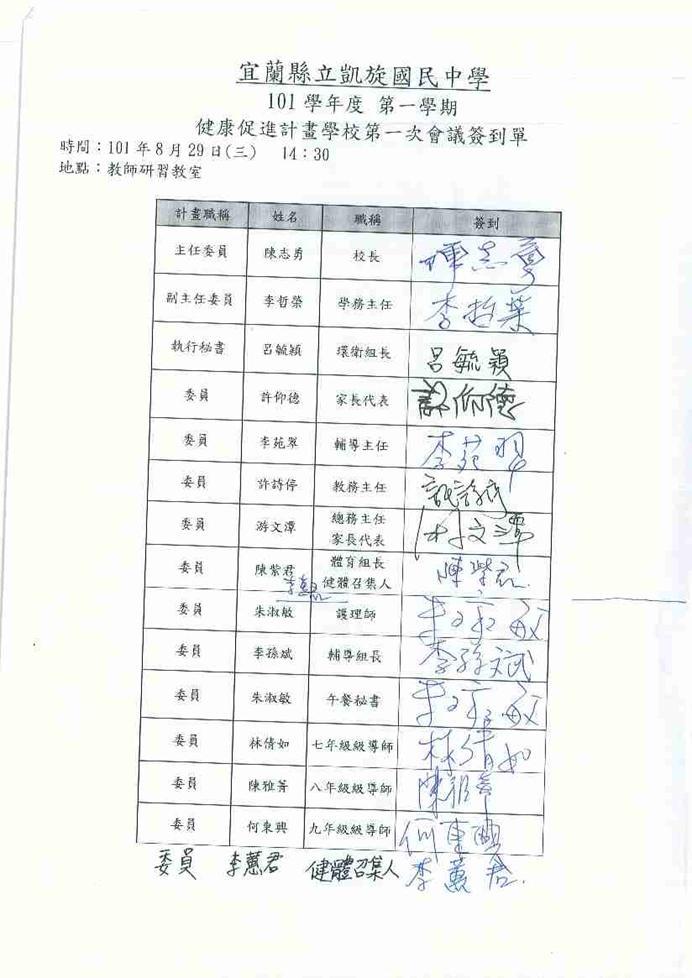 宜蘭縣立凱旋國民中學
101學年度 第一學期
健康促進計畫學校第一次會議簽到單
時間：101年8月29日(三) 14：30
地點：教師研習教室
計畫職稱 姓名 職稱 簽到
主任委員 陳志勇 校長 陳志勇
副主任委員 李哲榮 學務主任 李哲榮
執行秘書 呂毓穎 環衛組長 呂毓穎
委員 許仰德 家長代表 許仰德
委員 李苑翠 輔導主任 李苑
委員 許詩停 教務主任 許詩停
委員 游文潭 總務主任 游文潭
家長代表
委員 陳紫君 體育組長 陳紫君
健體召集人
委員 朱淑敏 護理師 朱淑敏
委員 李孫斌 輔導組長 李孫斌
委員 朱淑敏 午餐秘書 朱淑敏
委員 林倩如 七年級級導師 林倩如
委員 陳雅菁 八年級級導師 陳雅菁
委員 何東興 九年級級導師 何東興
委員 李蕙君 健體召集人 李蕙君